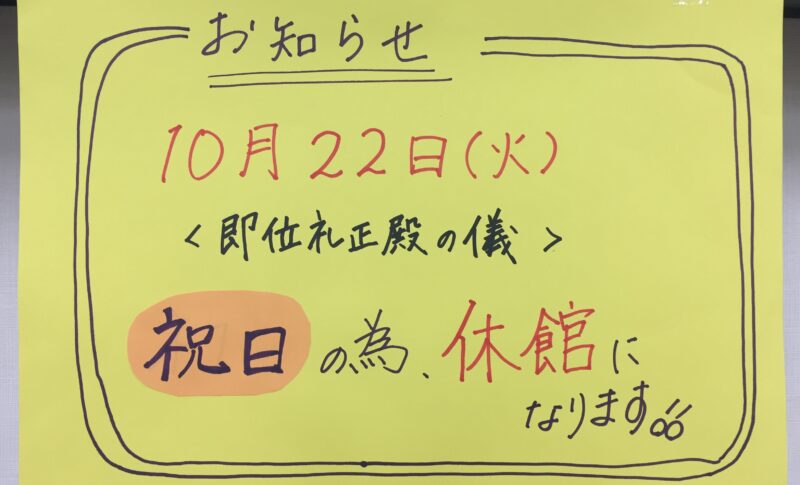 お知らせ
10月22日(火)
<即位礼正殿の儀>
祝日の為、休館に
なります!!